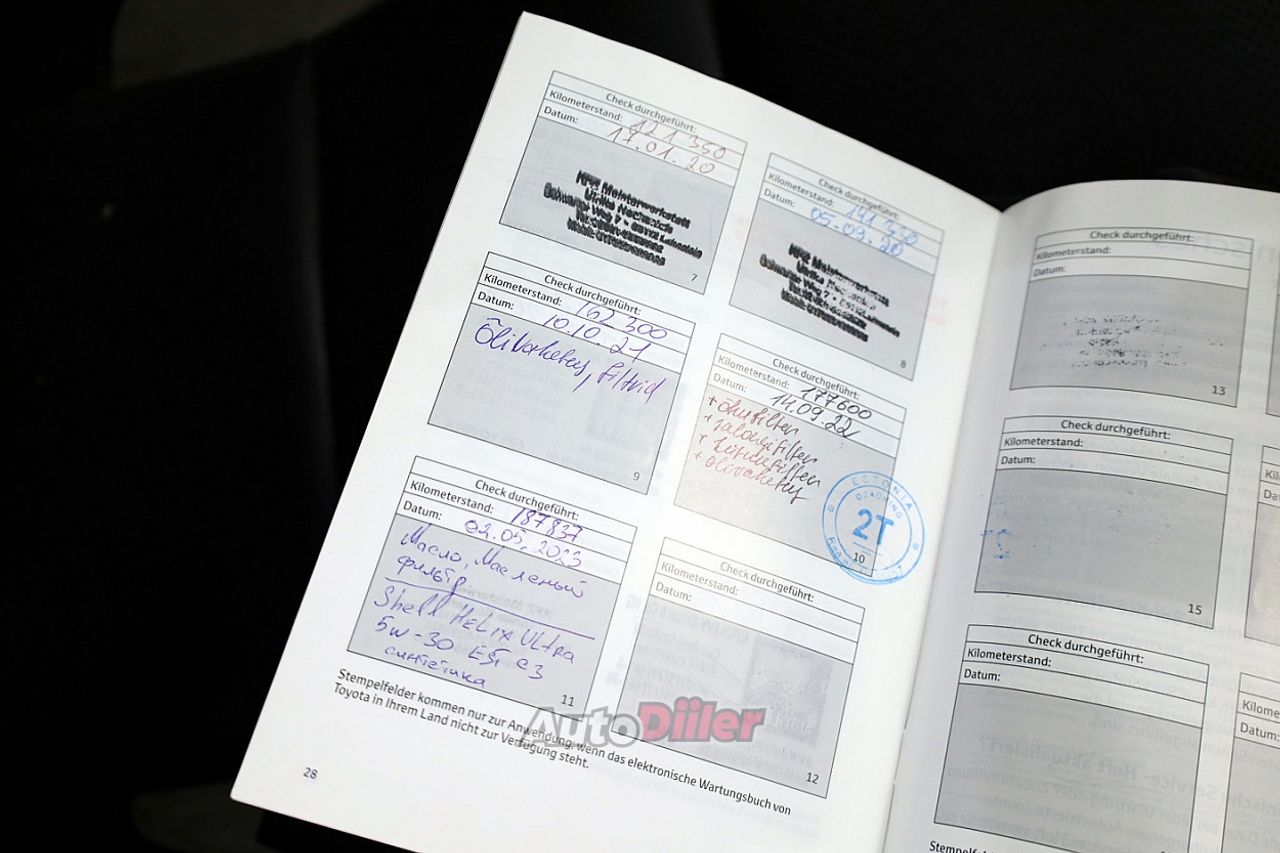 Check durchgeführt:
Kilometerstand: 121 350
Datum: 17.01.20
KFZ Meisterwerkstatt
7
Check durchgeführt:
Kilometerstand: 141 330
Datum: 05.09.20
KFZ Meisterwerkstatt
8
Check durchgeführt:
Kilometerstand: 162 300
Datum: 10.10 21
Õlivahetus, filtrid
9
Check durchgeführt:
Kilometerstand: 177600
Datum: 14.09.22
+ õhufilter
+ salongifilter
+ kütusefilter
+ õlivahetus
ESTONIA
2T
10
Check durchgeführt:
Kilometerstand: 187837
Datum: 02.05.2023
Масло, Масленый
фильтр
Shell HELIX ULtra
5w-30 C3
синтетика
11
Check durchgeführt:
Kilometerstand:
Datum:
12
Stempelfelder kommen nur zur Anwendung, wenn das elektronische Wartungsbuch von
Toyota in Ihrem Land nicht zur Verfügung steht.
28
Check durchgeführt:
Kilometerstand:
Datum:
13
Check durchgeführt:
Kilometerstand:
Datum:
15
Check durchgeführt:
Kilometerstand:
Datum:
AutoDiiler